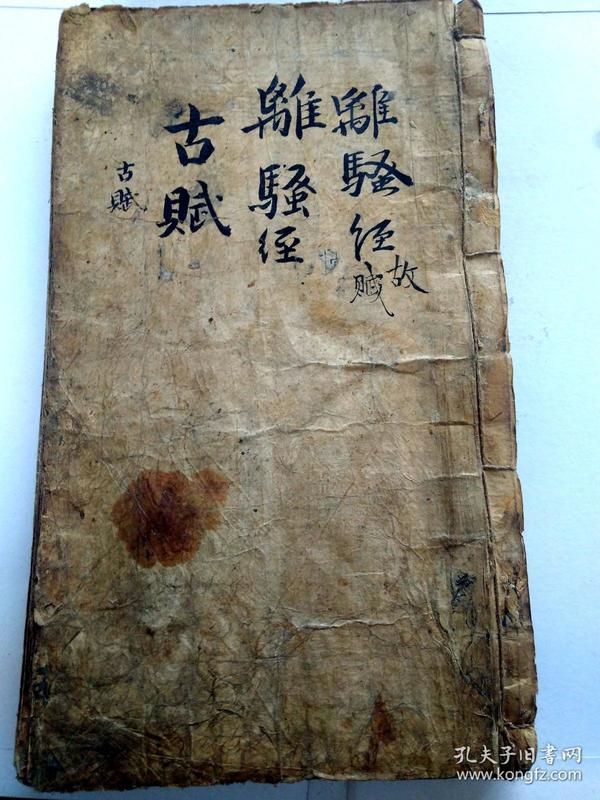 離騷經
故賦
離騷經
古賦
古賦
孔夫子旧书网
www.kongfz.com